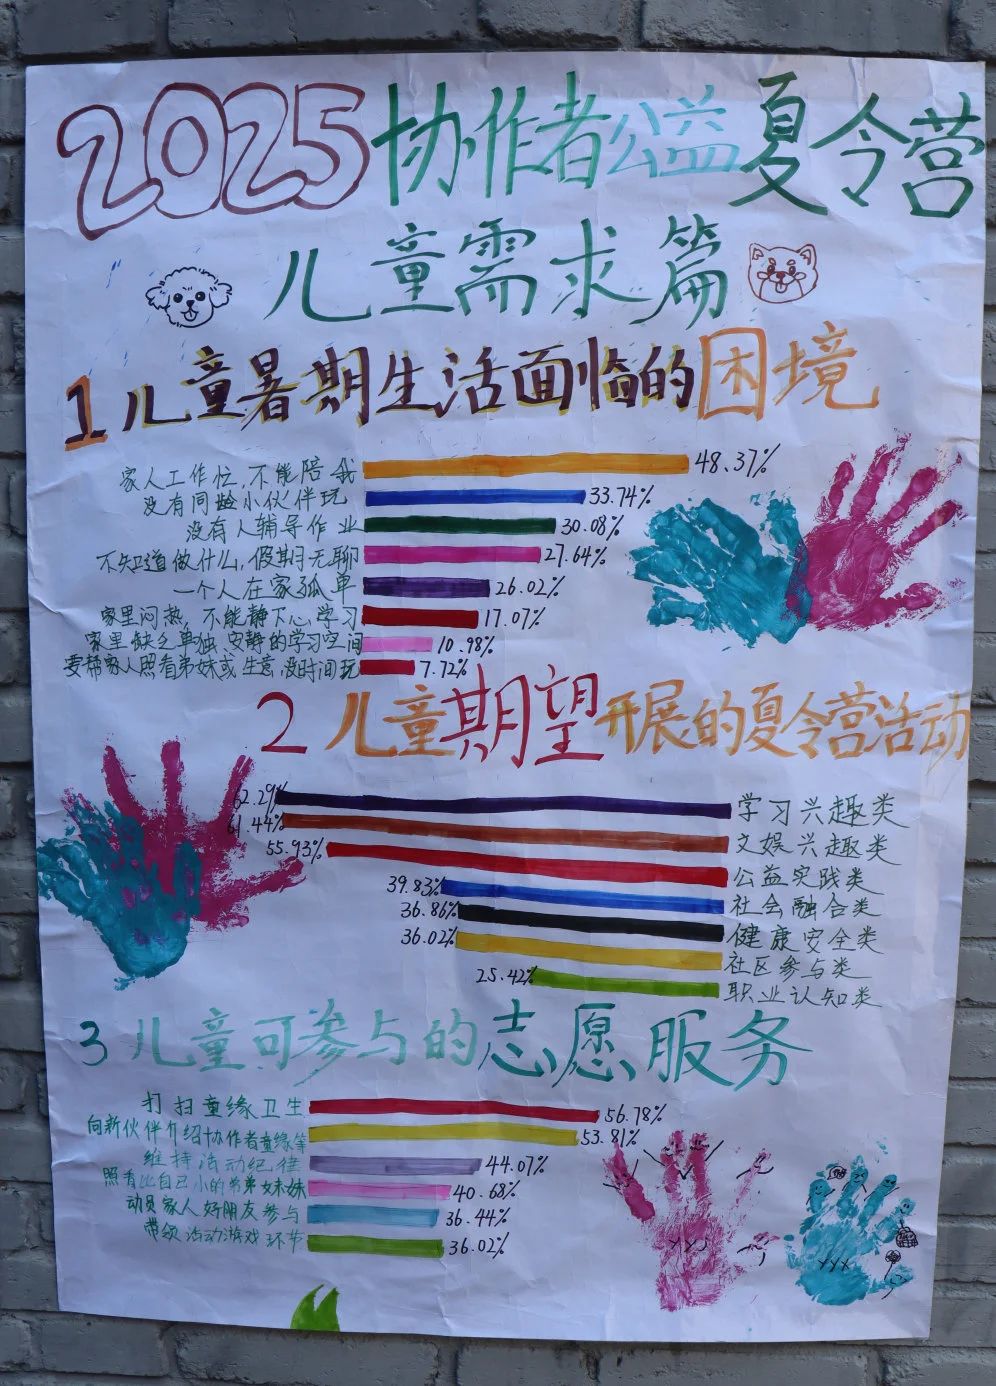 2025协作者公益夏令营
儿童需求篇
1 儿童暑期生活面临的困境
家人工作忙,不能陪我 48.37%
没有同龄小伙伴玩 33.74%
没有人辅导作业 30.08%
不知道做什么,假期无聊 27.64%
一个人在家孤单 26.02%
家里闷热,不能静下心学习 17.07%
家里缺乏单独、安静的学习空间 10.98%
要帮家人照看弟妹或生意,没时间玩 7.72%
2 儿童期望开展的夏令营活动
62.29% 学习兴趣类
61.44% 文娱兴趣类
55.93% 公益实践类
39.83% 社会融合类
36.86% 健康安全类
36.02% 社区参与类
25.42% 职业认知类
3 儿童可参与的志愿服务
打扫童缘卫生 56.78%
向新伙伴介绍协作者童缘等 53.81%
维持活动纪律 44.07%
照看比自己小的弟弟妹妹 40.68%
动员家人好朋友参与 36.44%
带领活动游戏环节 36.02%